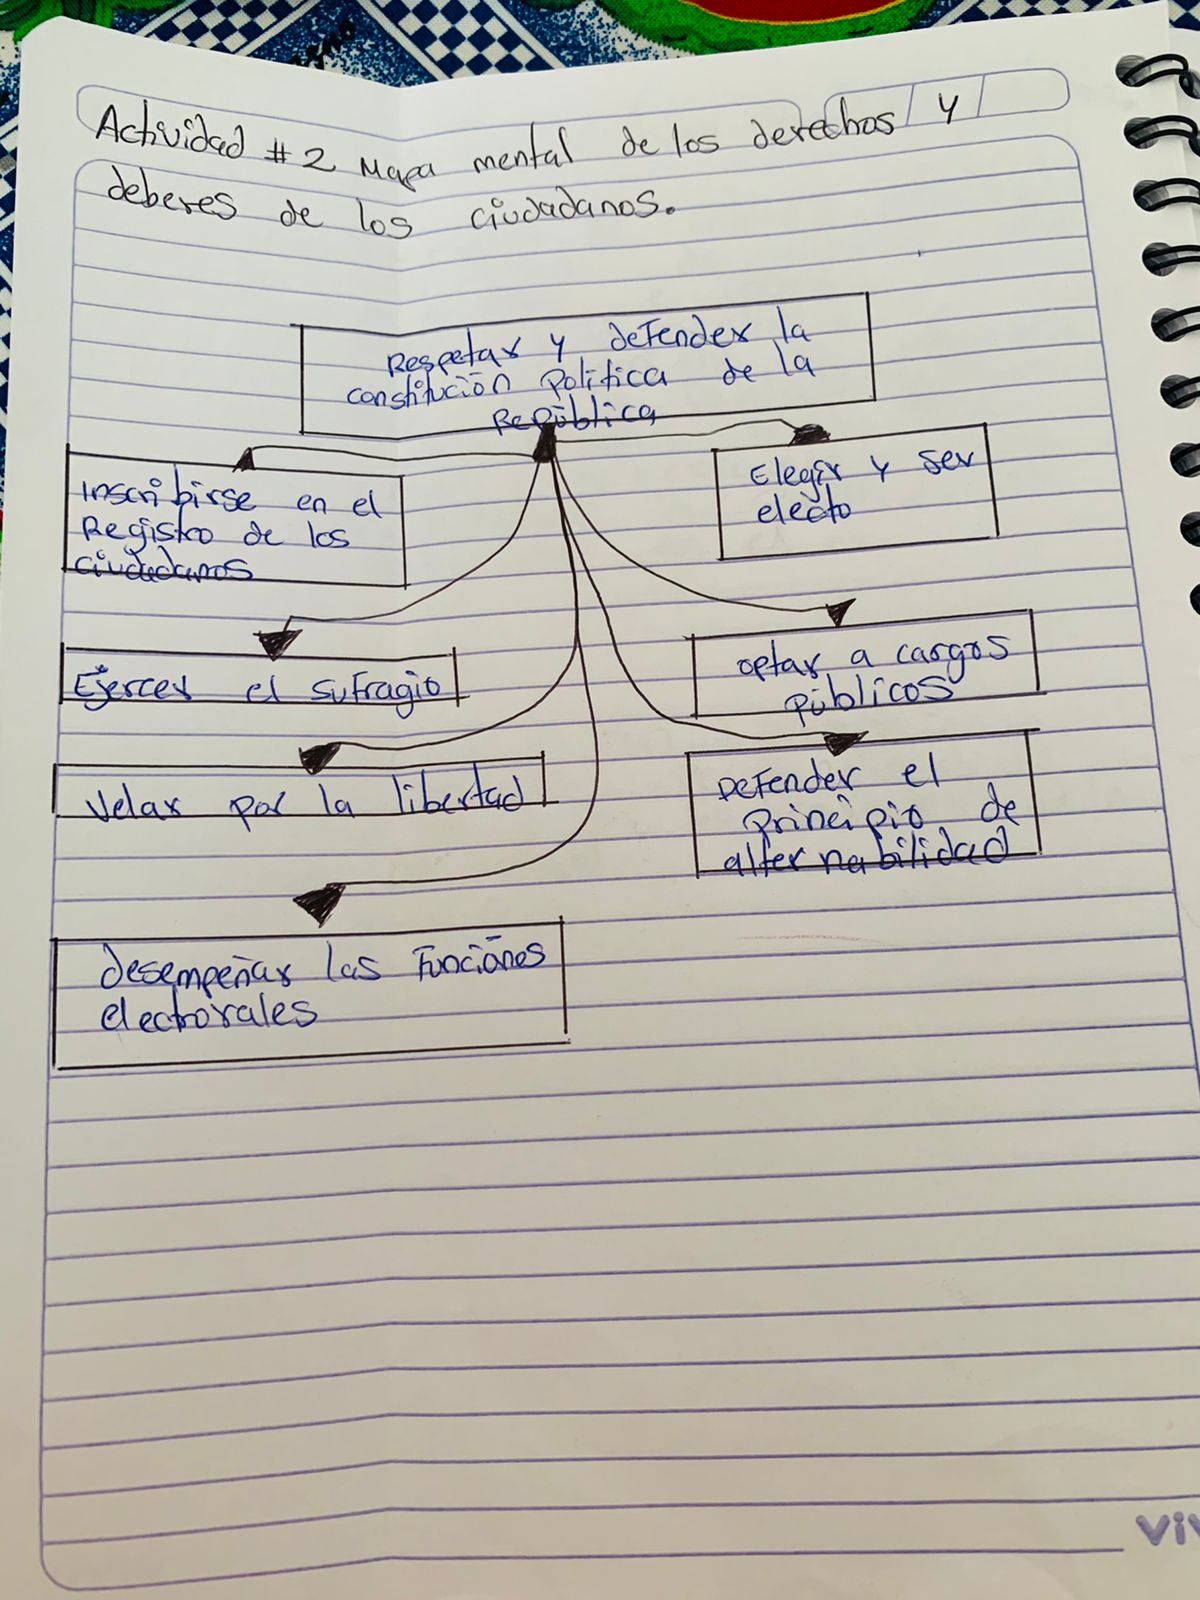 Actividad #2 Mapa mental de los derechos y
deberes de los ciudadanos.
Respetar y defender la
constitución política de la
República
Inscribirse en el
Registro de los
ciudadanos
Elegir y ser
electo
Ejercer el sufragio
optar a cargos
públicos
Velar por la libertad
Defender el
principio de
alternabilidad
desempeñar las funciones
electorales